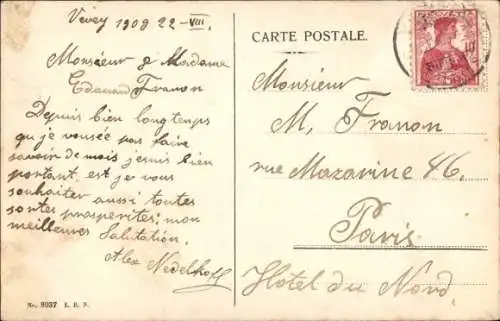 Vevey 1908 22-VIII.
Monsieur & Madame
Edouard Franon
Depuis bien longtemps
qu je vousée pas faire
savoir de mois je suis bien
portant, est je vous
souhaiter aussi toutes
sortes prosperités; mon
meilleures Salutation.
Alex Nedelhoff
No. 8057 E. R. N.
CARTE POSTALE.
Monsieur
M, Franon
rue Mazarine 46,
Paris
Hôtel du Nord,